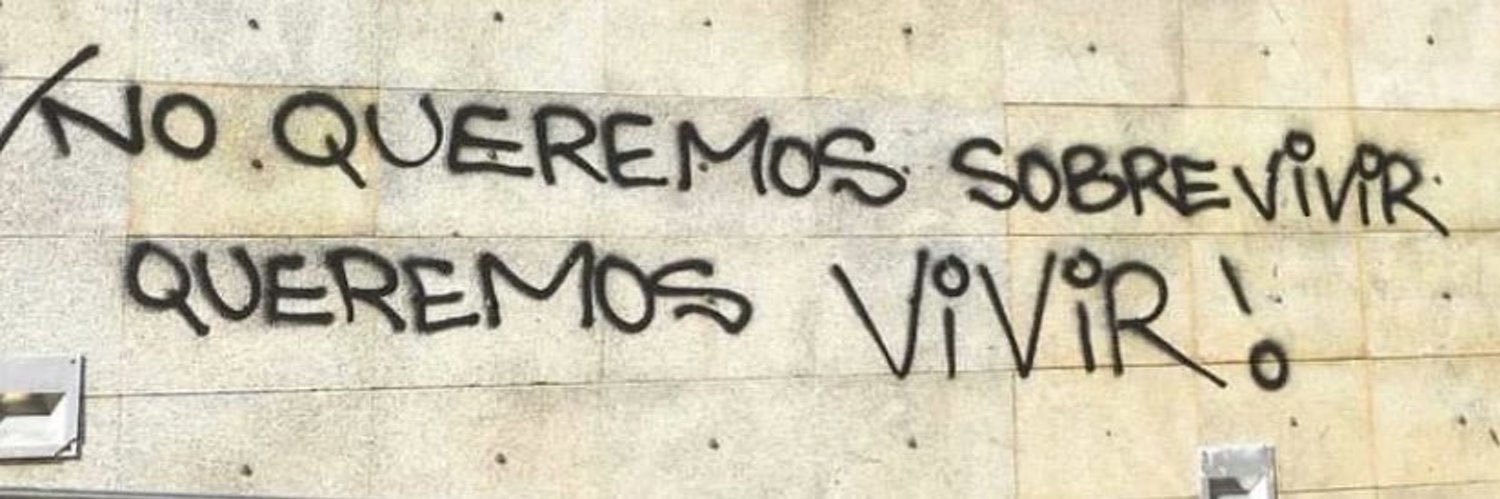 NO QUEREMOS SOBREViViR
QUEREMOS ViViR!